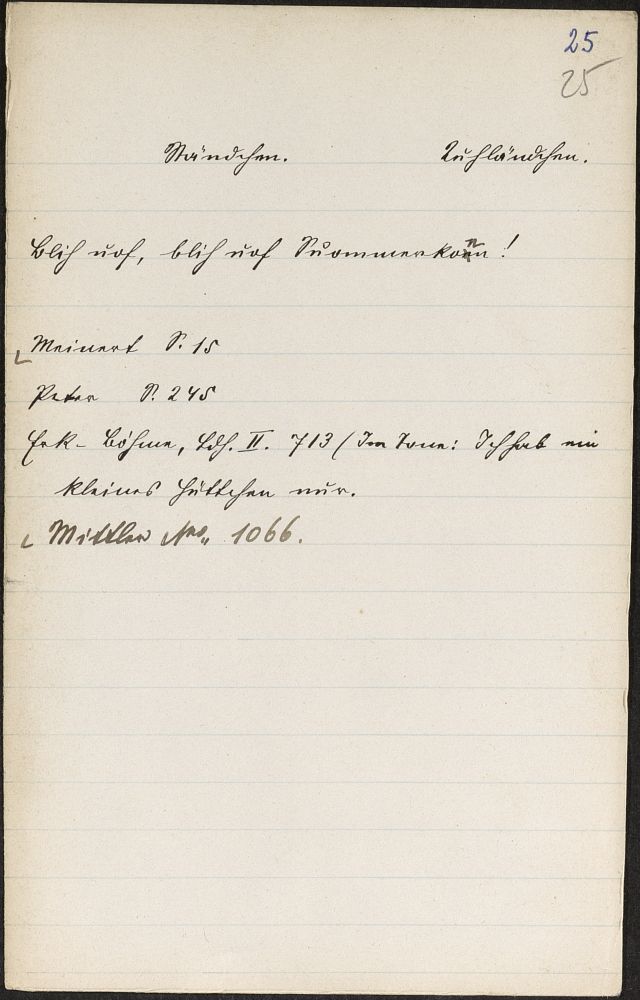 25
25
Ständchen. Kuhländchen.
Blih uof, blih uof Suommerkoan!
Meinert S. 15
Peter S. 245
Erk-Böhme, Ldh. II. 713 (Im Tone: Ich hab ein
kleines Hüttchen nur.
Mittler No. 1066.